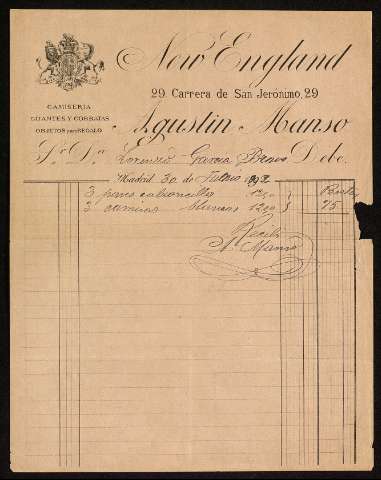 New England
29 Carrera de San Jerónimo, 29
CAMISERIA
GUANTES Y CORBATAS
OBJETOS PARA REGALO
Agustin Manso
Sr. Dn. Lorenzo Garcia Debe.
Madrid 30 de de 1892
3 pares calzoncillos Pesetas
3 camisas blancas 12,50 75
Recibi
A Manso